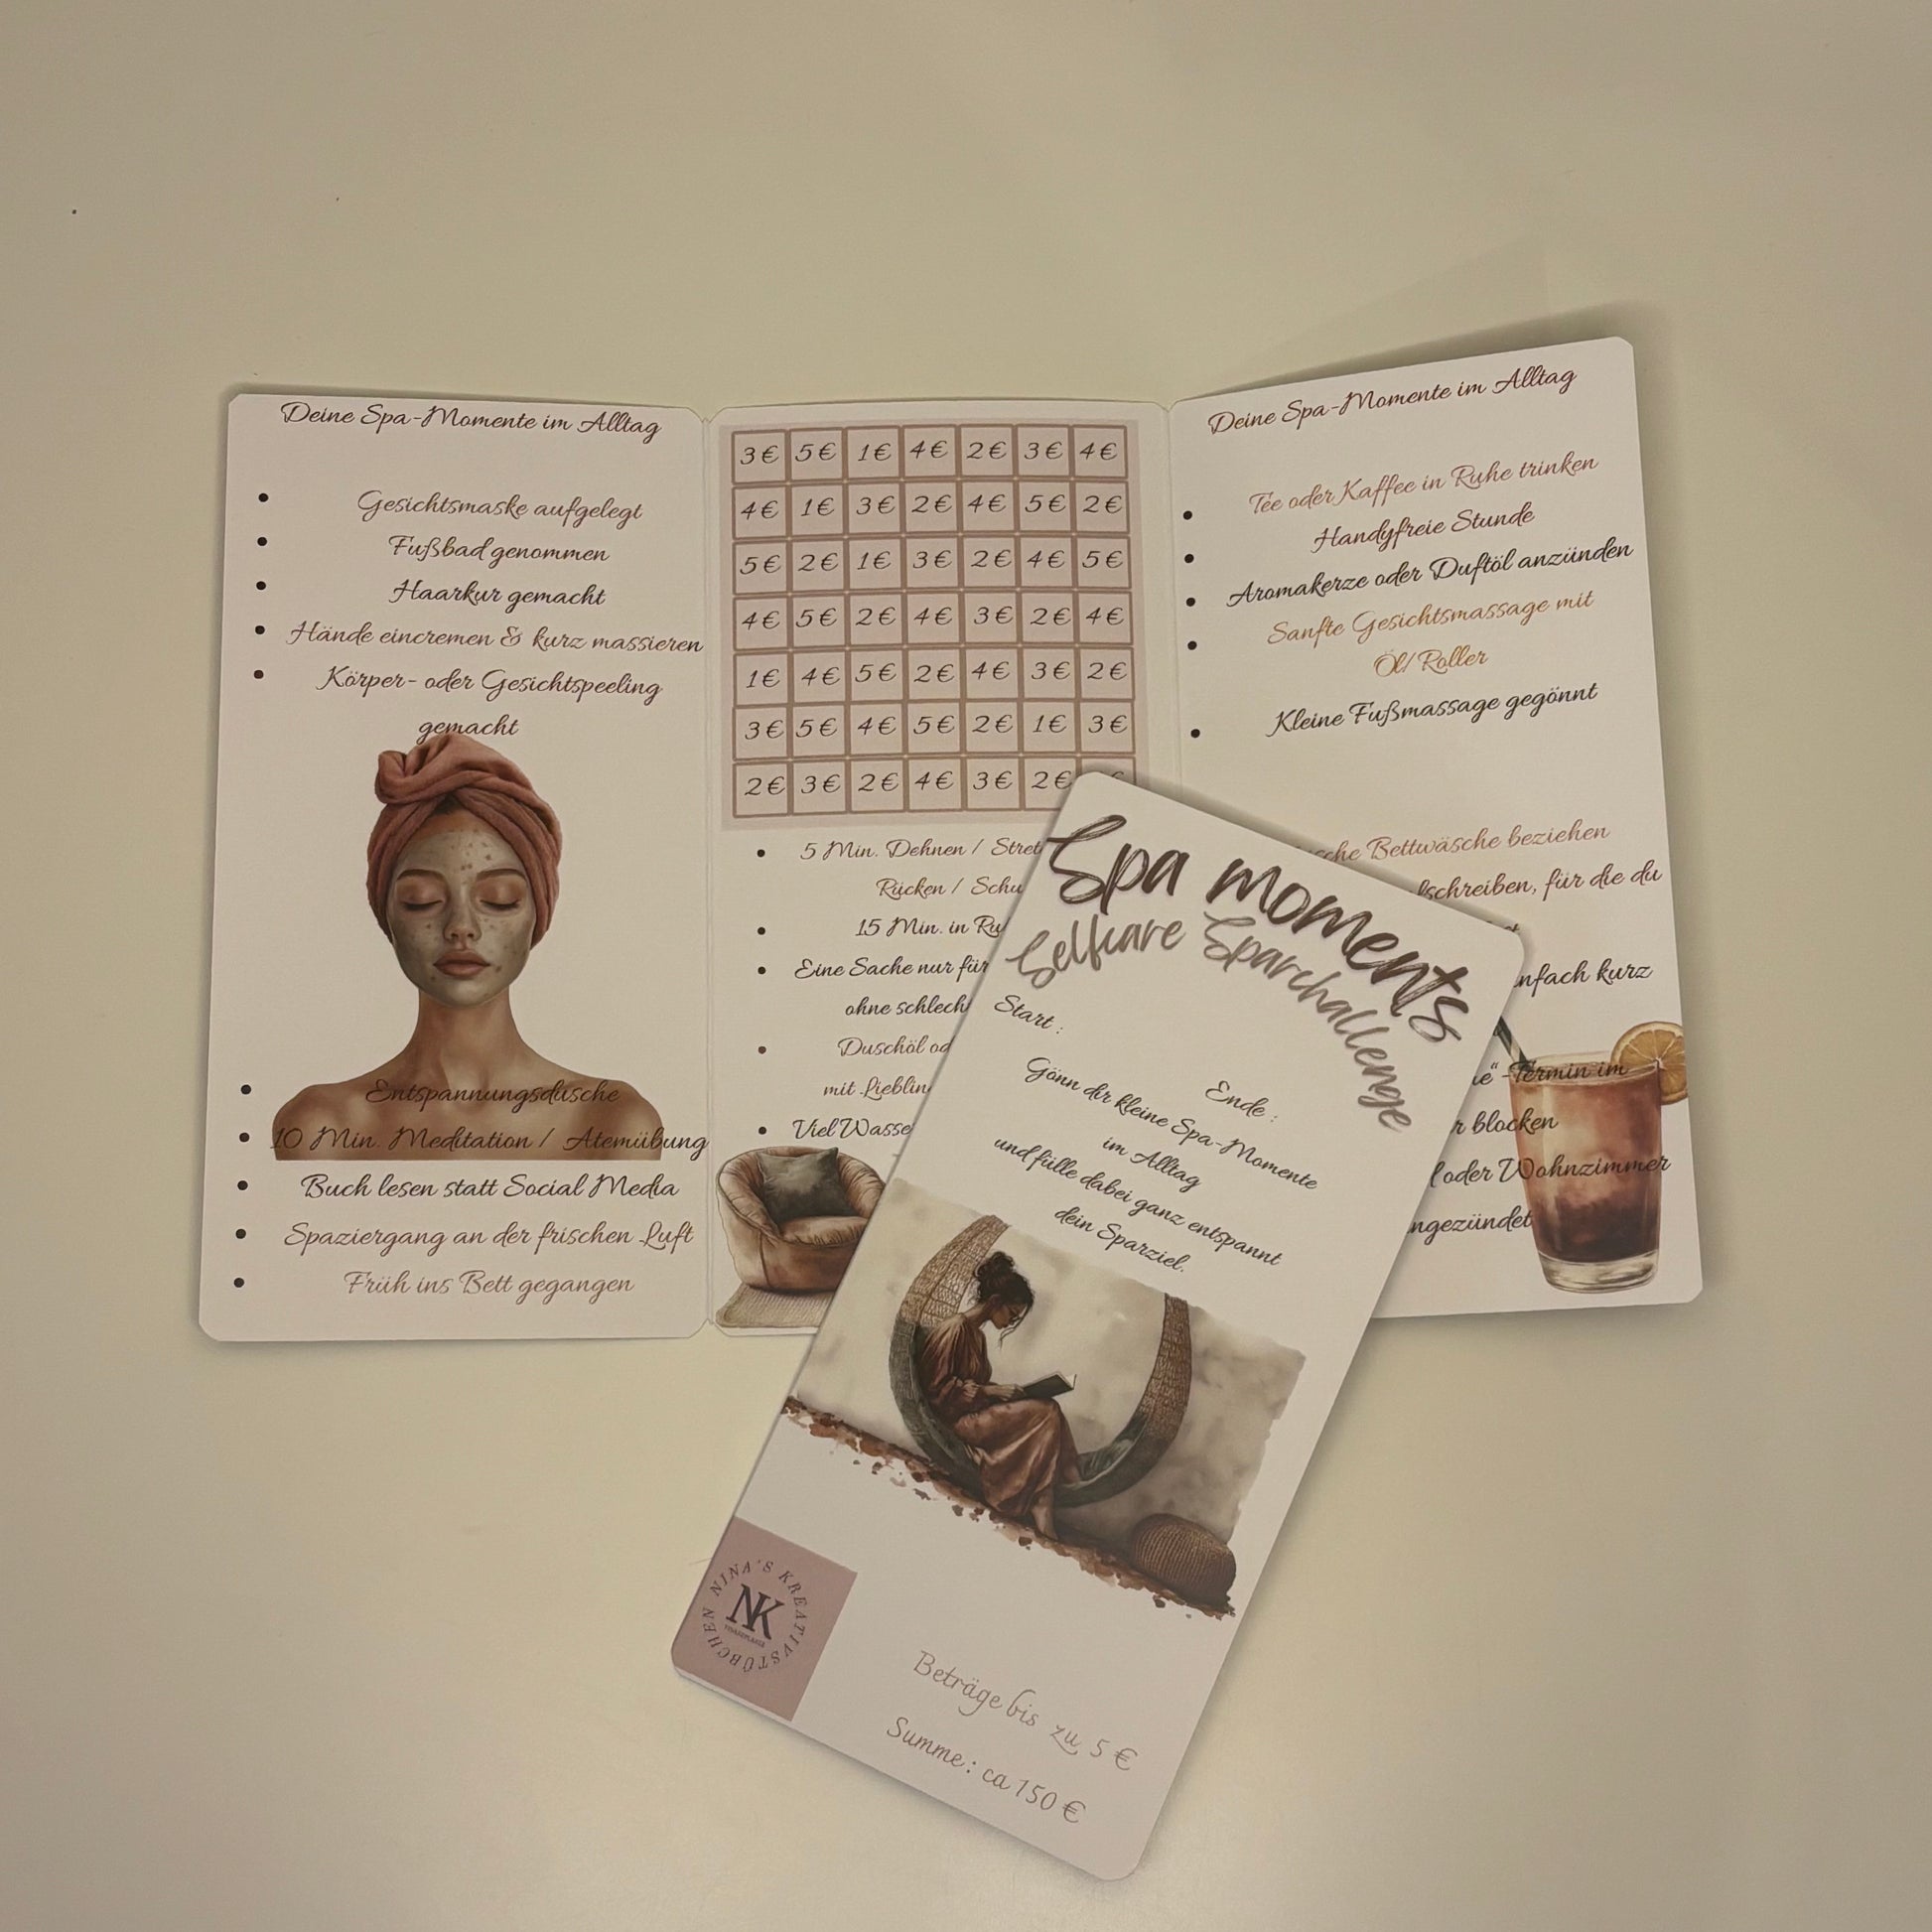 Deine Spa-Momente im Alltag
Gesichtsmaske aufgelegt
Fußbad genommen
Haarkur gemacht
Hände eincremen & kurz massieren
Körper- oder Gesichtspeeling
gemacht
Entspannungsdusche
10 Min. Meditation / Atemübung
Buch lesen statt Social Media
Spaziergang an der frischen Luft
Früh ins Bett gegangen
3€ 5€ 1€ 4€ 2€ 3€ 4€
4€ 1€ 3€ 2€ 4€ 5€ 2€
5€ 2€ 1€ 3€ 2€ 4€ 5€
4€ 5€ 2€ 4€ 3€ 2€ 4€
1€ 4€ 5€ 2€ 4€ 3€ 2€
3€ 5€ 4€ 5€ 2€ 1€ 3€
2€ 3€ 2€ 4€ 3€ 2€ €
5 Min. Dehnen / Stret
Rücken / Schu
15 Min. in Ru
Eine Sache nur für
ohne schlech
Duschöl od
mit Lieblin
Viel Wasse
Deine Spa-Momente im Alltag
Tee oder Kaffee in Ruhe trinken
Handyfreie Stunde
Aromakerze oder Duftöl anzünden
Sanfte Gesichtsmassage mit
Öl/Roller
Kleine Fußmassage gegönnt
sche Bettwäsche beziehen
fschreiben, für die du
nfach kurz
ie"-Termin im
r blocken
l oder Wohnzimmer
ngezündet
Spa moments
Selfcare Sparchallenge
Start :
Ende :
Gönn dir kleine Spa-Momente
im Alltag
und fülle dabei ganz entspannt
dein Sparziel.
NINA'S KREATIVSTÜBCHEN
NK
Beträge bis zu 5 €
Summe : ca 150 €